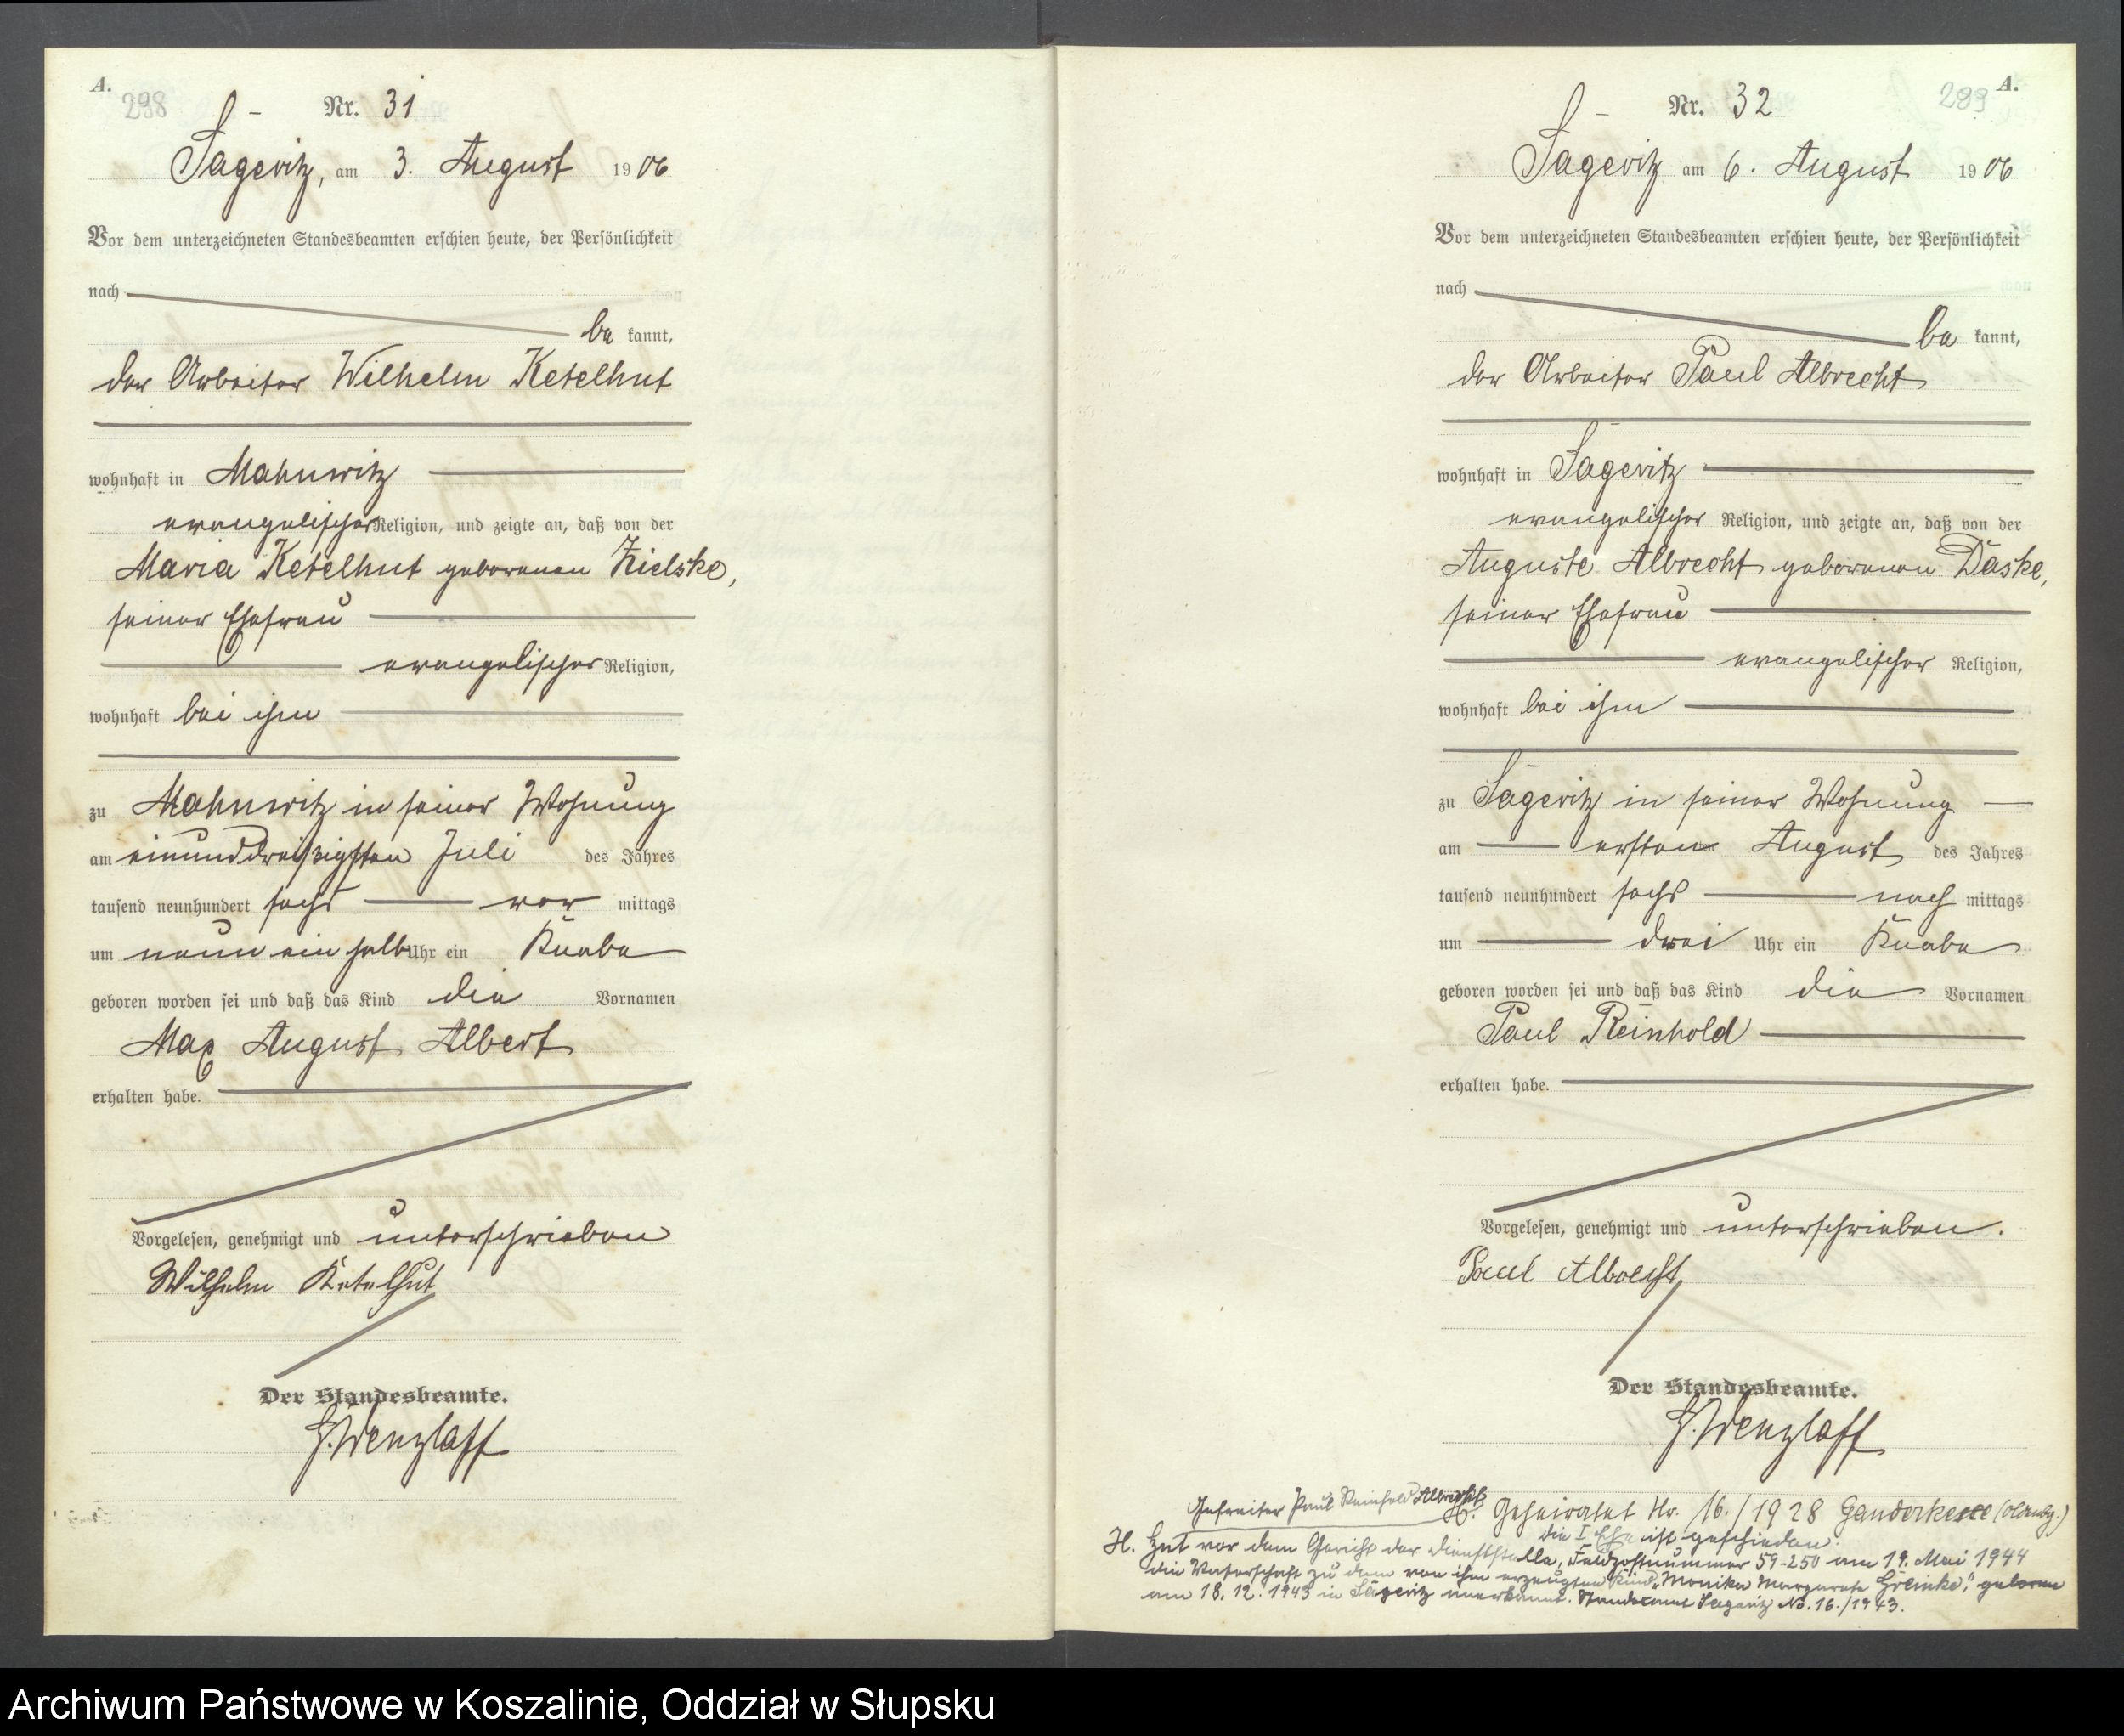 A.
298
Nr. 31
Sageritz, am 3. August 1906
Vor dem unterzeichneten Standesbeamten erschien heute, der Persönlichkeit
nach
be kannt,
der Arbeiter Wilhelm Ketelhut
wohnhaft in Mahnwitz
evangelischer Religion, und zeigte an, daß von der
Maria Ketelhut geborenen Zielske,
seiner Ehefrau
evangelischer Religion,
wohnhaft bei ihm
zu Mahnwitz in seiner Wohnung
am einunddreißigsten Juli des Jahres
tausend neunhundert sechs vor mittags
um neun ein halb Uhr ein Knabe
geboren worden sei und daß das Kind die Vornamen
Max August Albert
erhalten habe.
Vorgelesen, genehmigt und unterschrieben
Wilhelm Ketelhut
Der Standesbeamte.
Wenzlaff
A.
299
Nr. 32
Sageritz am 6. August 1906
Vor dem unterzeichneten Standesbeamten erschien heute, der Persönlichkeit
nach
be kannt,
der Arbeiter Paul Albrecht
wohnhaft in Sageritz
evangelischer Religion, und zeigte an, daß von der
Auguste Albrecht geborenen Daske,
seiner Ehefrau
evangelischer Religion,
wohnhaft bei ihm
zu Sageritz in seiner Wohnung
am ersten August des Jahres
tausend neunhundert sechs nach mittags
um drei Uhr ein Knabe
geboren worden sei und daß das Kind die Vornamen
Paul Reinhold
erhalten habe.
Vorgelesen, genehmigt und unterschrieben.
Paul Albrecht
Der Standesbeamte.
Wenzlaff
Gefreiter Paul Reinhold Albrecht
Geheiratet Nr. 16./1928 Ganderkesee (Oldnbg.)
die I Ehe ist geschieden.
H. hat vor dem Gericht der Dienststelle, Feldpostnummer 59-250 am 19. Mai 1944
die Vaterschaft zu dem von ihm erzeugten Kind "Monika Margarete Greinke," geboren
am 18.12.1943 in Sageritz anerkannt. Standesamt Sageritz No. 16./1943.
Archiwum Państwowe w Koszalinie, Oddział w Słupsku